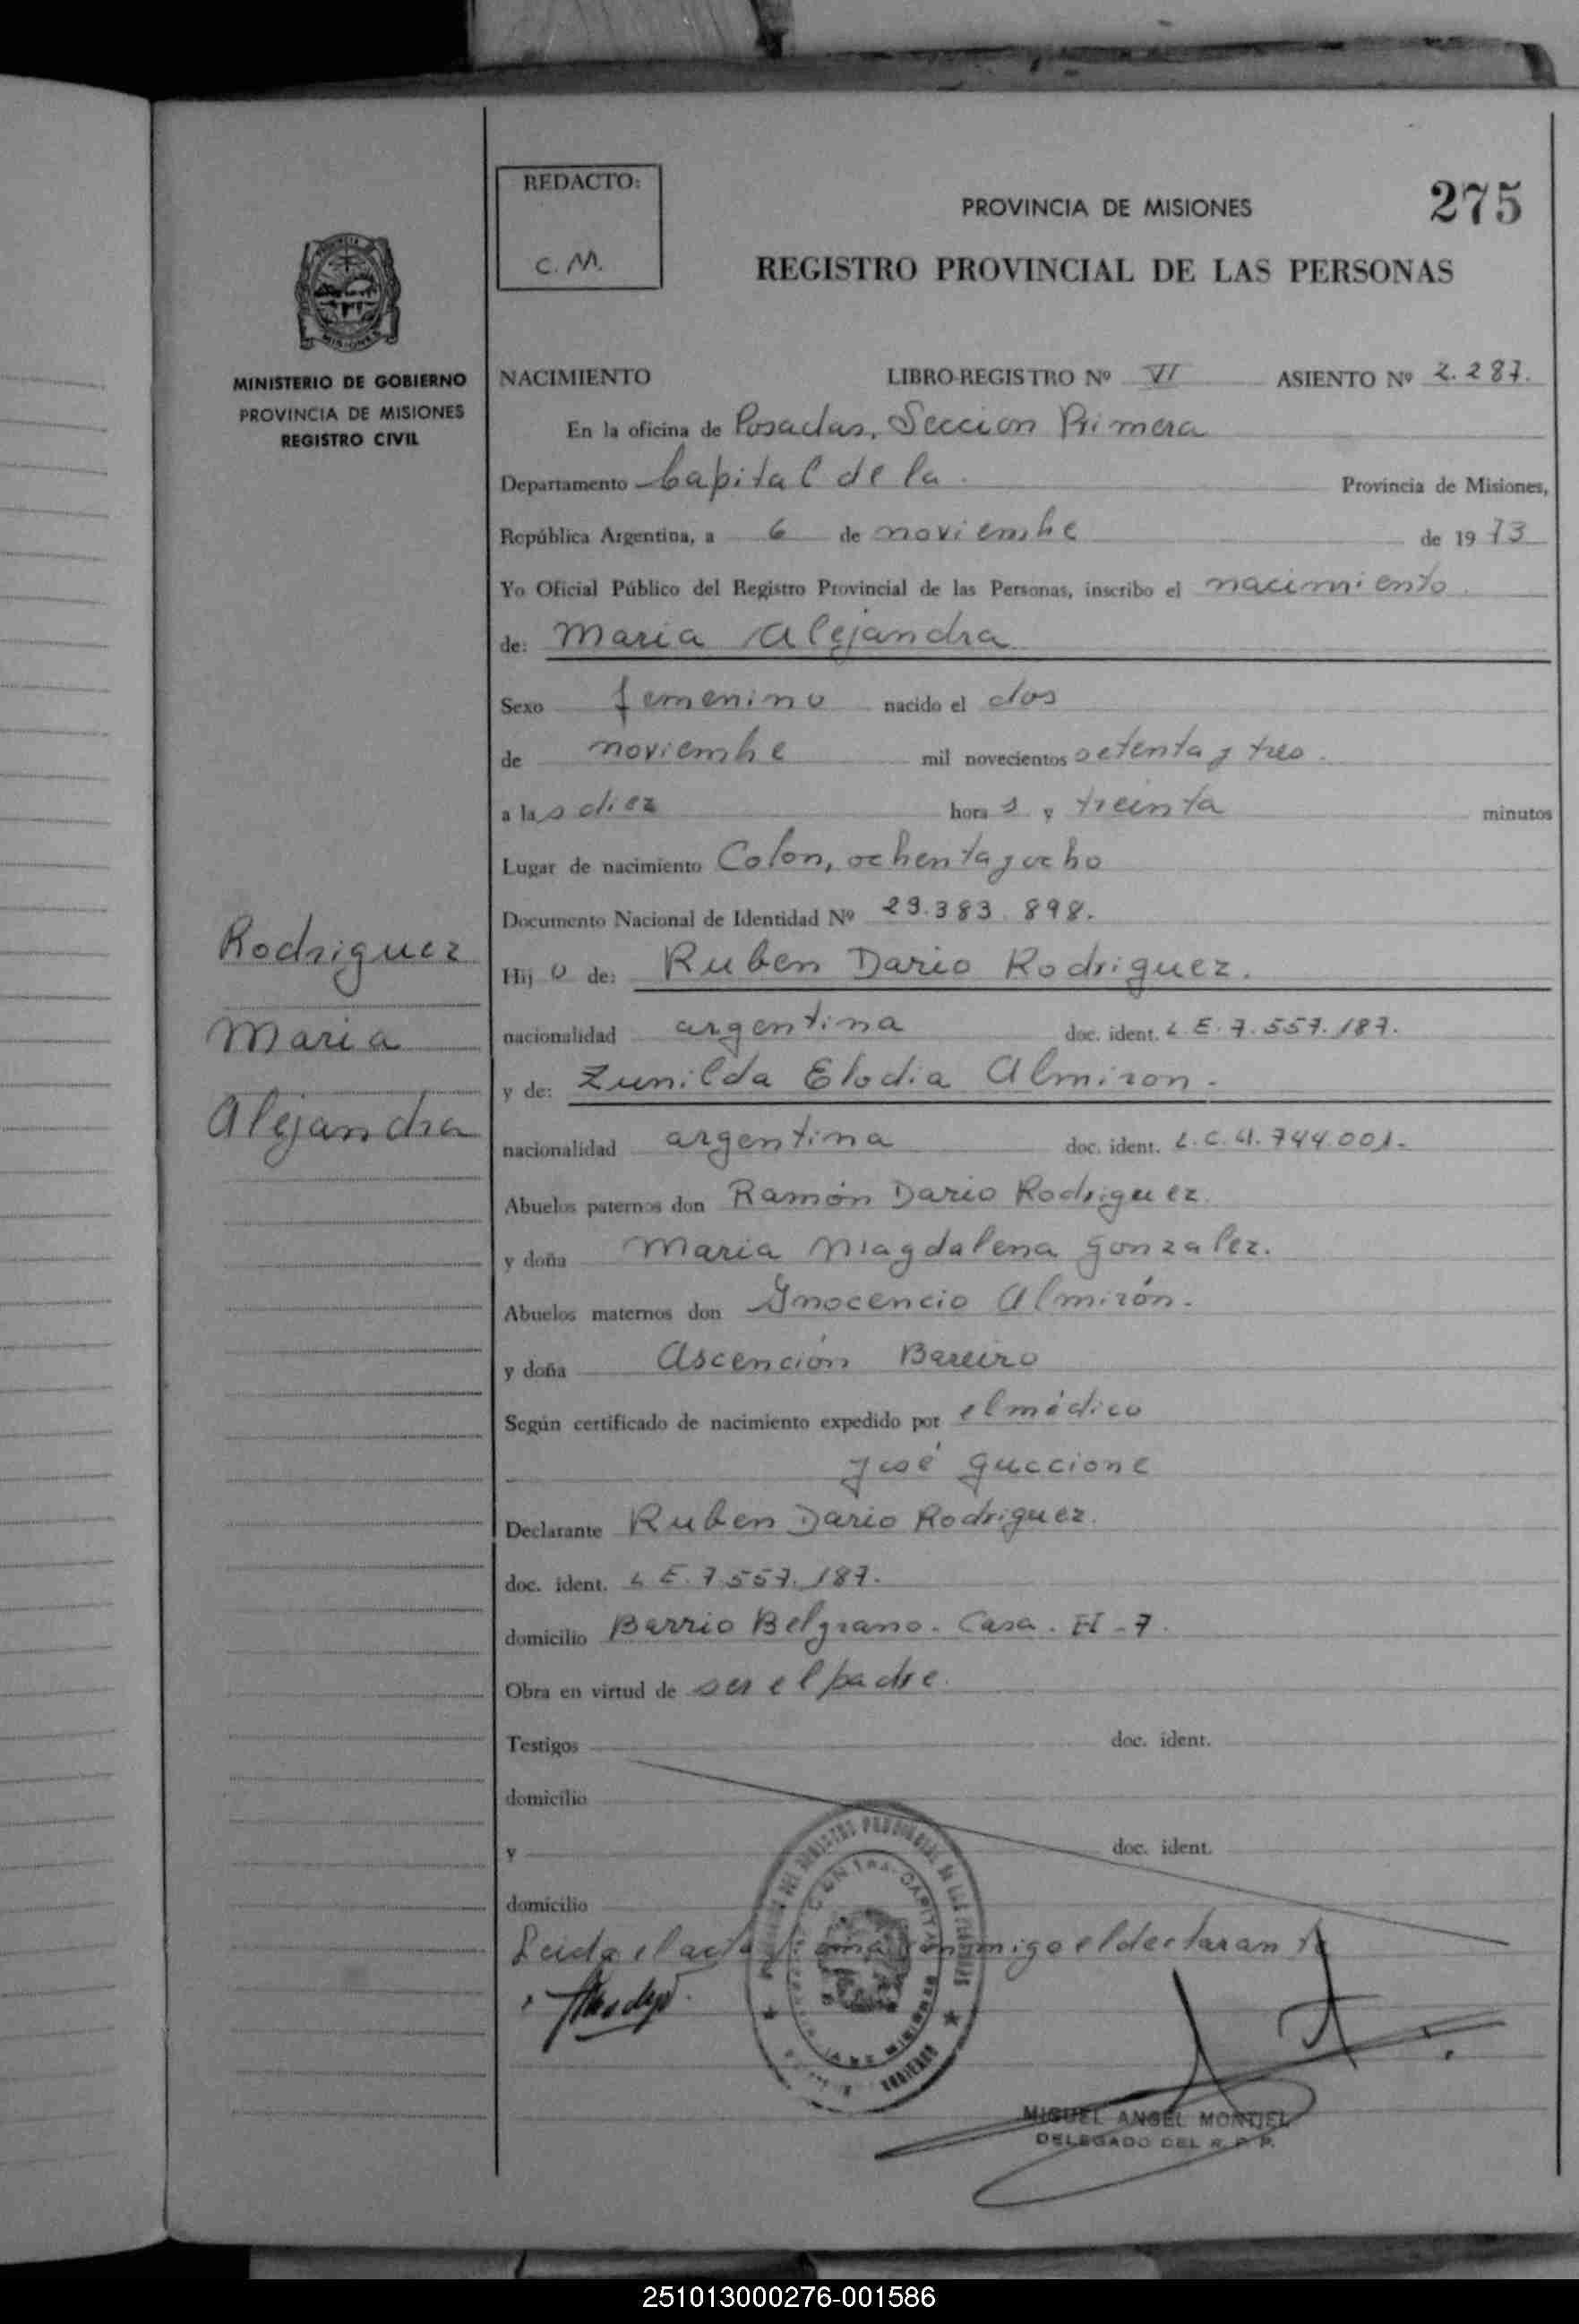 REDACTO:
C. M.
PROVINCIA DE MISIONES
275
REGISTRO PROVINCIAL DE LAS PERSONAS
MINISTERIO DE GOBIERNO
PROVINCIA DE MISIONES
REGISTRO CIVIL
NACIMIENTO LIBRO-REGISTRO Nº VI ASIENTO Nº 2.287.
En la oficina de Posadas, Seccion Primera
Departamento Capital de la Provincia de Misiones,
República Argentina, a 6 de noviembre de 1973
Yo Oficial Público del Registro Provincial de las Personas, inscribo el nacimiento
de: Maria Alejandra
Sexo femenino nacido el dos
de noviembre mil novecientos setenta y tres.
a las diez horas y treinta minutos
Lugar de nacimiento Colon, ochenta y ocho
Documento Nacional de Identidad Nº 23.383.898.
Rodriguez
Maria
Alejandra
Hijo de: Ruben Dario Rodriguez.
nacionalidad argentina doc. ident. L.E. 7.557.187.
y de: Zunilda Elodia Almiron.
nacionalidad argentina doc. ident. L.C. 4.744.001.
Abuelos paternos don Ramón Dario Rodriguez.
y doña Maria Magdalena Gonzalez.
Abuelos maternos don Inocencio Almirón.
y doña Ascención Bareiro
Según certificado de nacimiento expedido por el médico
José Guccione
Declarante Ruben Dario Rodriguez.
doc. ident. L.E. 7.557.187.
domicilio Barrio Belgrano. Casa. H-7.
Obra en virtud de ser el padre.
Testigos doc. ident.
domicilio
y doc. ident.
domicilio
Leida el acta firma conmigo el declarante
MIGUEL ANGEL MONTIEL
DELEGADO DEL R. P. P.
251013000276-001586